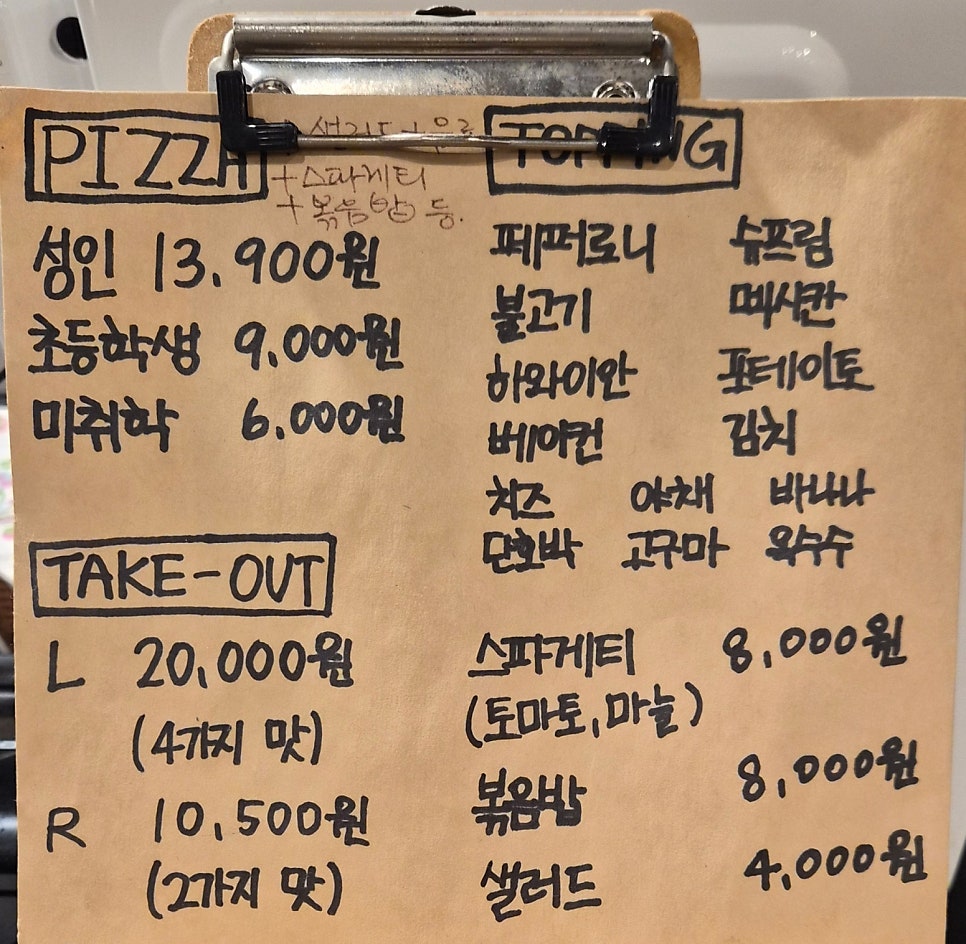 PIZZA
+ 샐러드
+ 스파게티
+ 볶음밥 등.
성인 13,900원
초등학생 9,000원
미취학 6,000원
TAKE-OUT
L 20,000원
(4가지 맛)
R 10,500원
(2가지 맛)
TOPPING
페퍼로니 슈프림
불고기 멕시칸
하와이안 포테이토
베이컨 김치
치즈 야채 바나나
단호박 고구마 옥수수
스파게티 8,000원
(토마토, 마늘)
볶음밥 8,000원
샐러드 4,000원